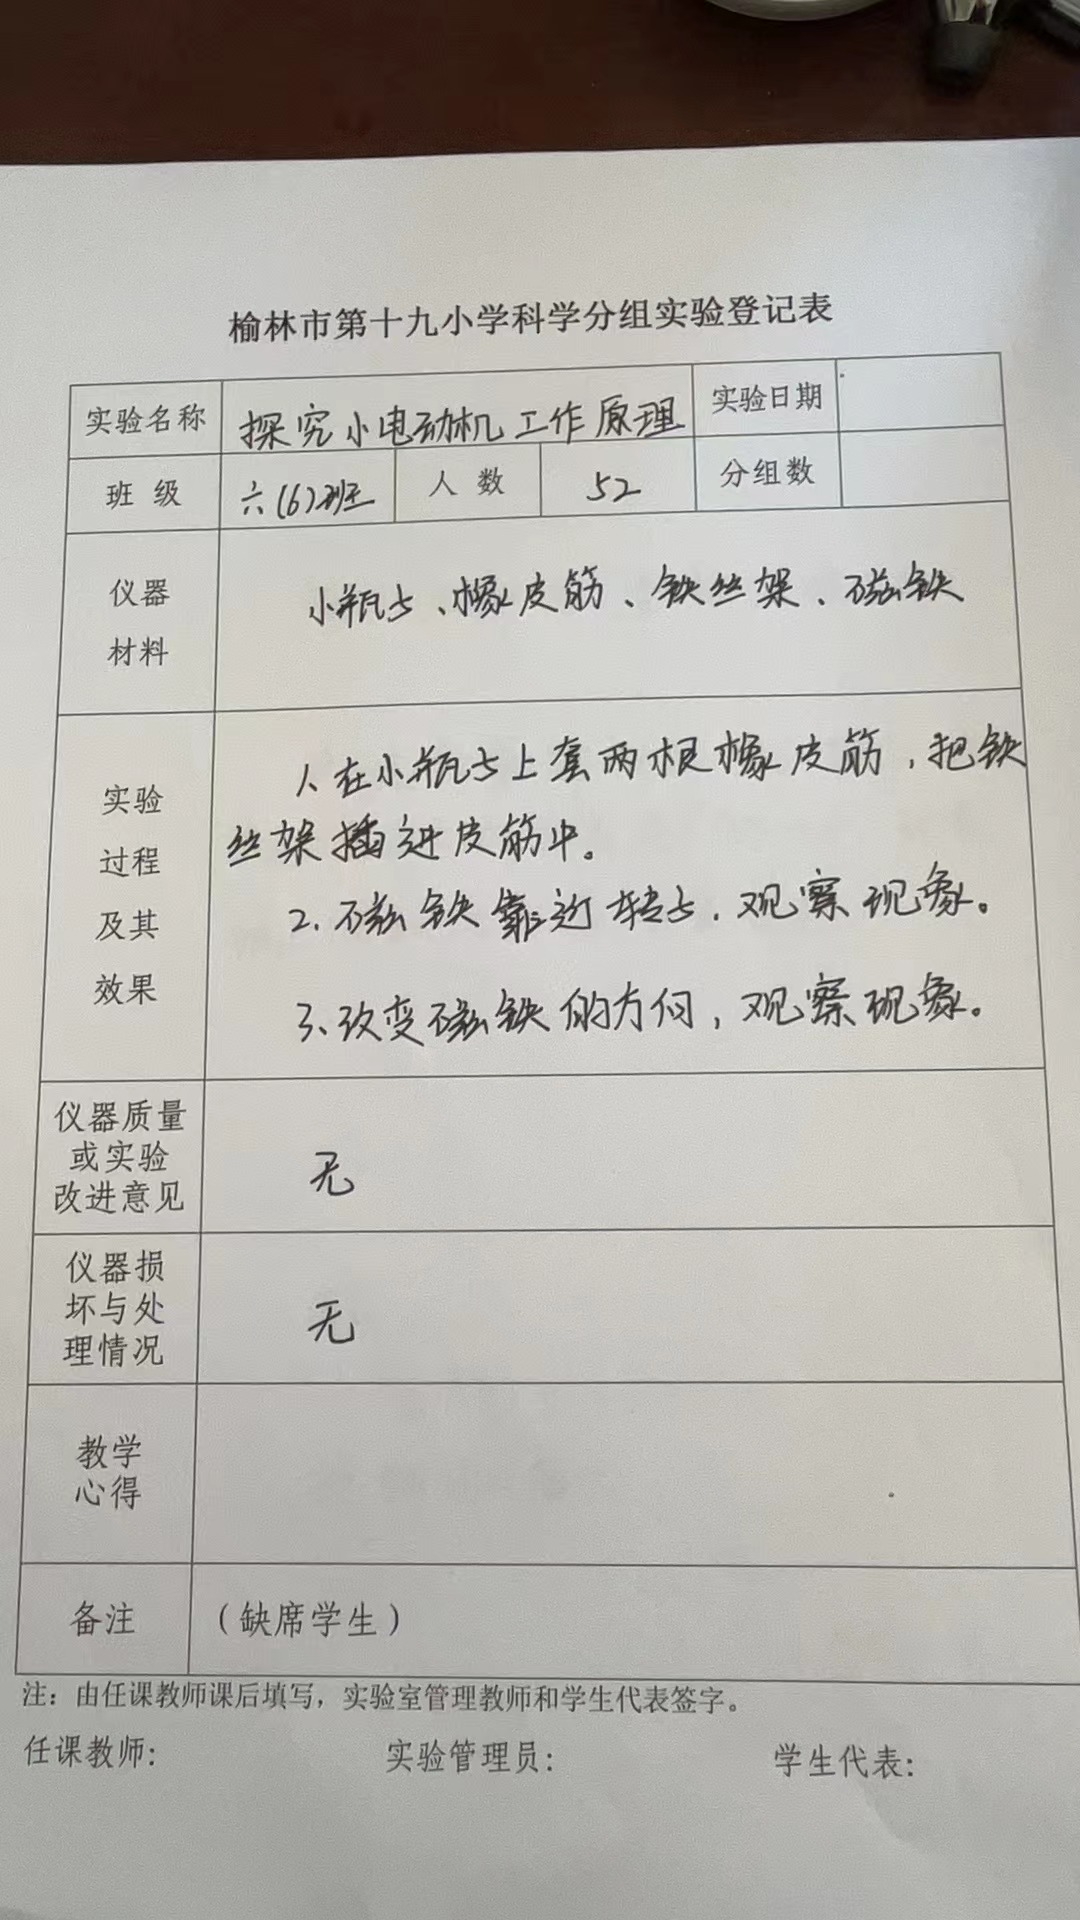 榆林市第十九小学科学分组实验登记表
实验名称 探究小电动机工作原理 实验日期
班 级 六(6)班 人 数 52 分组数
仪器
材料
小瓶占、橡皮筋、铁丝架、磁铁
实验
过程
及其
效果
1、在小瓶占上套两根橡皮筋，把铁
丝架插进皮筋中。
2、磁铁靠近转占，观察现象。
3、改变磁铁的方向，观察现象。
仪器质量
或实验
改进意见
无
仪器损
坏与处
理情况
无
教学
心得
备注 （缺席学生）
注：由任课教师课后填写，实验室管理教师和学生代表签字。
任课教师: 实验管理员: 学生代表: